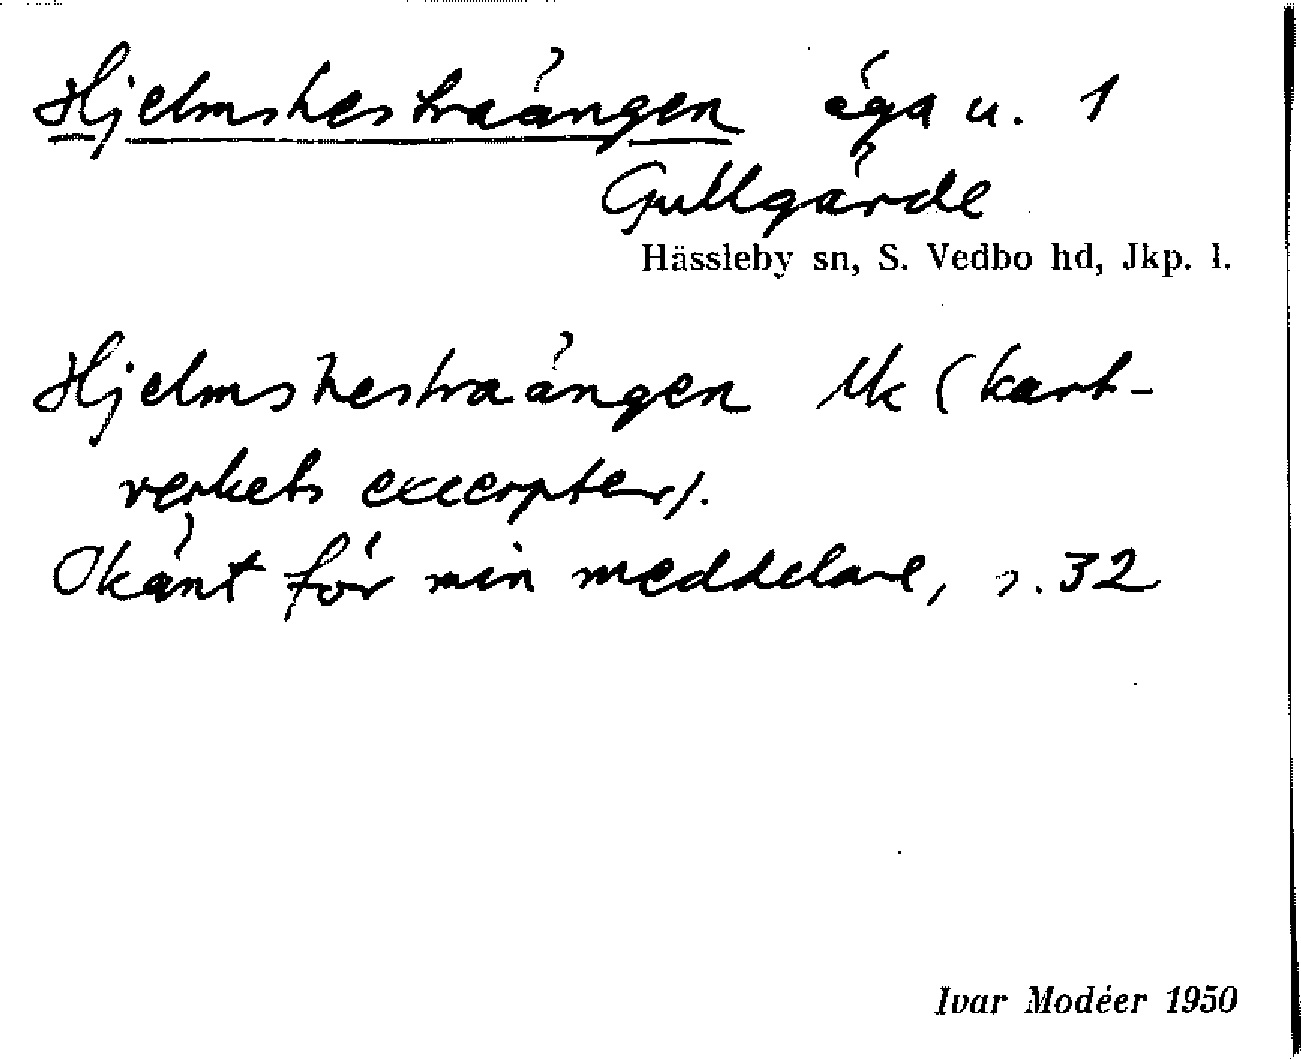 Hjelmshestraängen äga u. 1
Gullgärde
Hässleby sn, S. Vedbo hd, Jkp. l.
Hjelmshestraängen Uk (kart-
verkets excerpter).
Okänt för min meddelare, s. 32
Ivar Modéer 1950